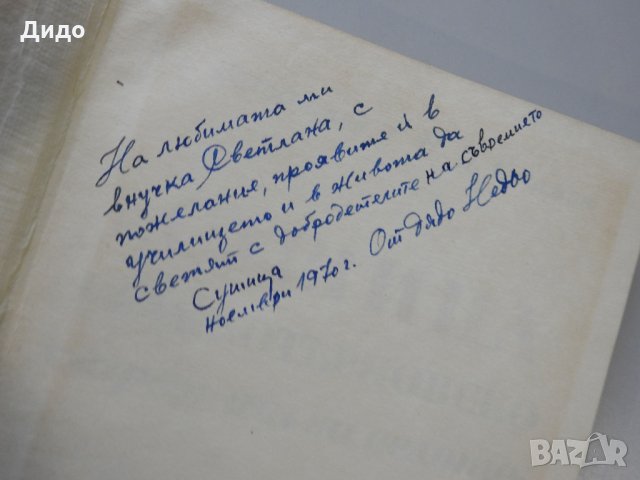 Дидо
На любимата ми
внучка Светлана, с
пожелание, проявите ѝ в
училището и в живота да
светят с добродетелите на съвремието
Сушица
ноември 1970 г. От дядо Недьо
BAZAR